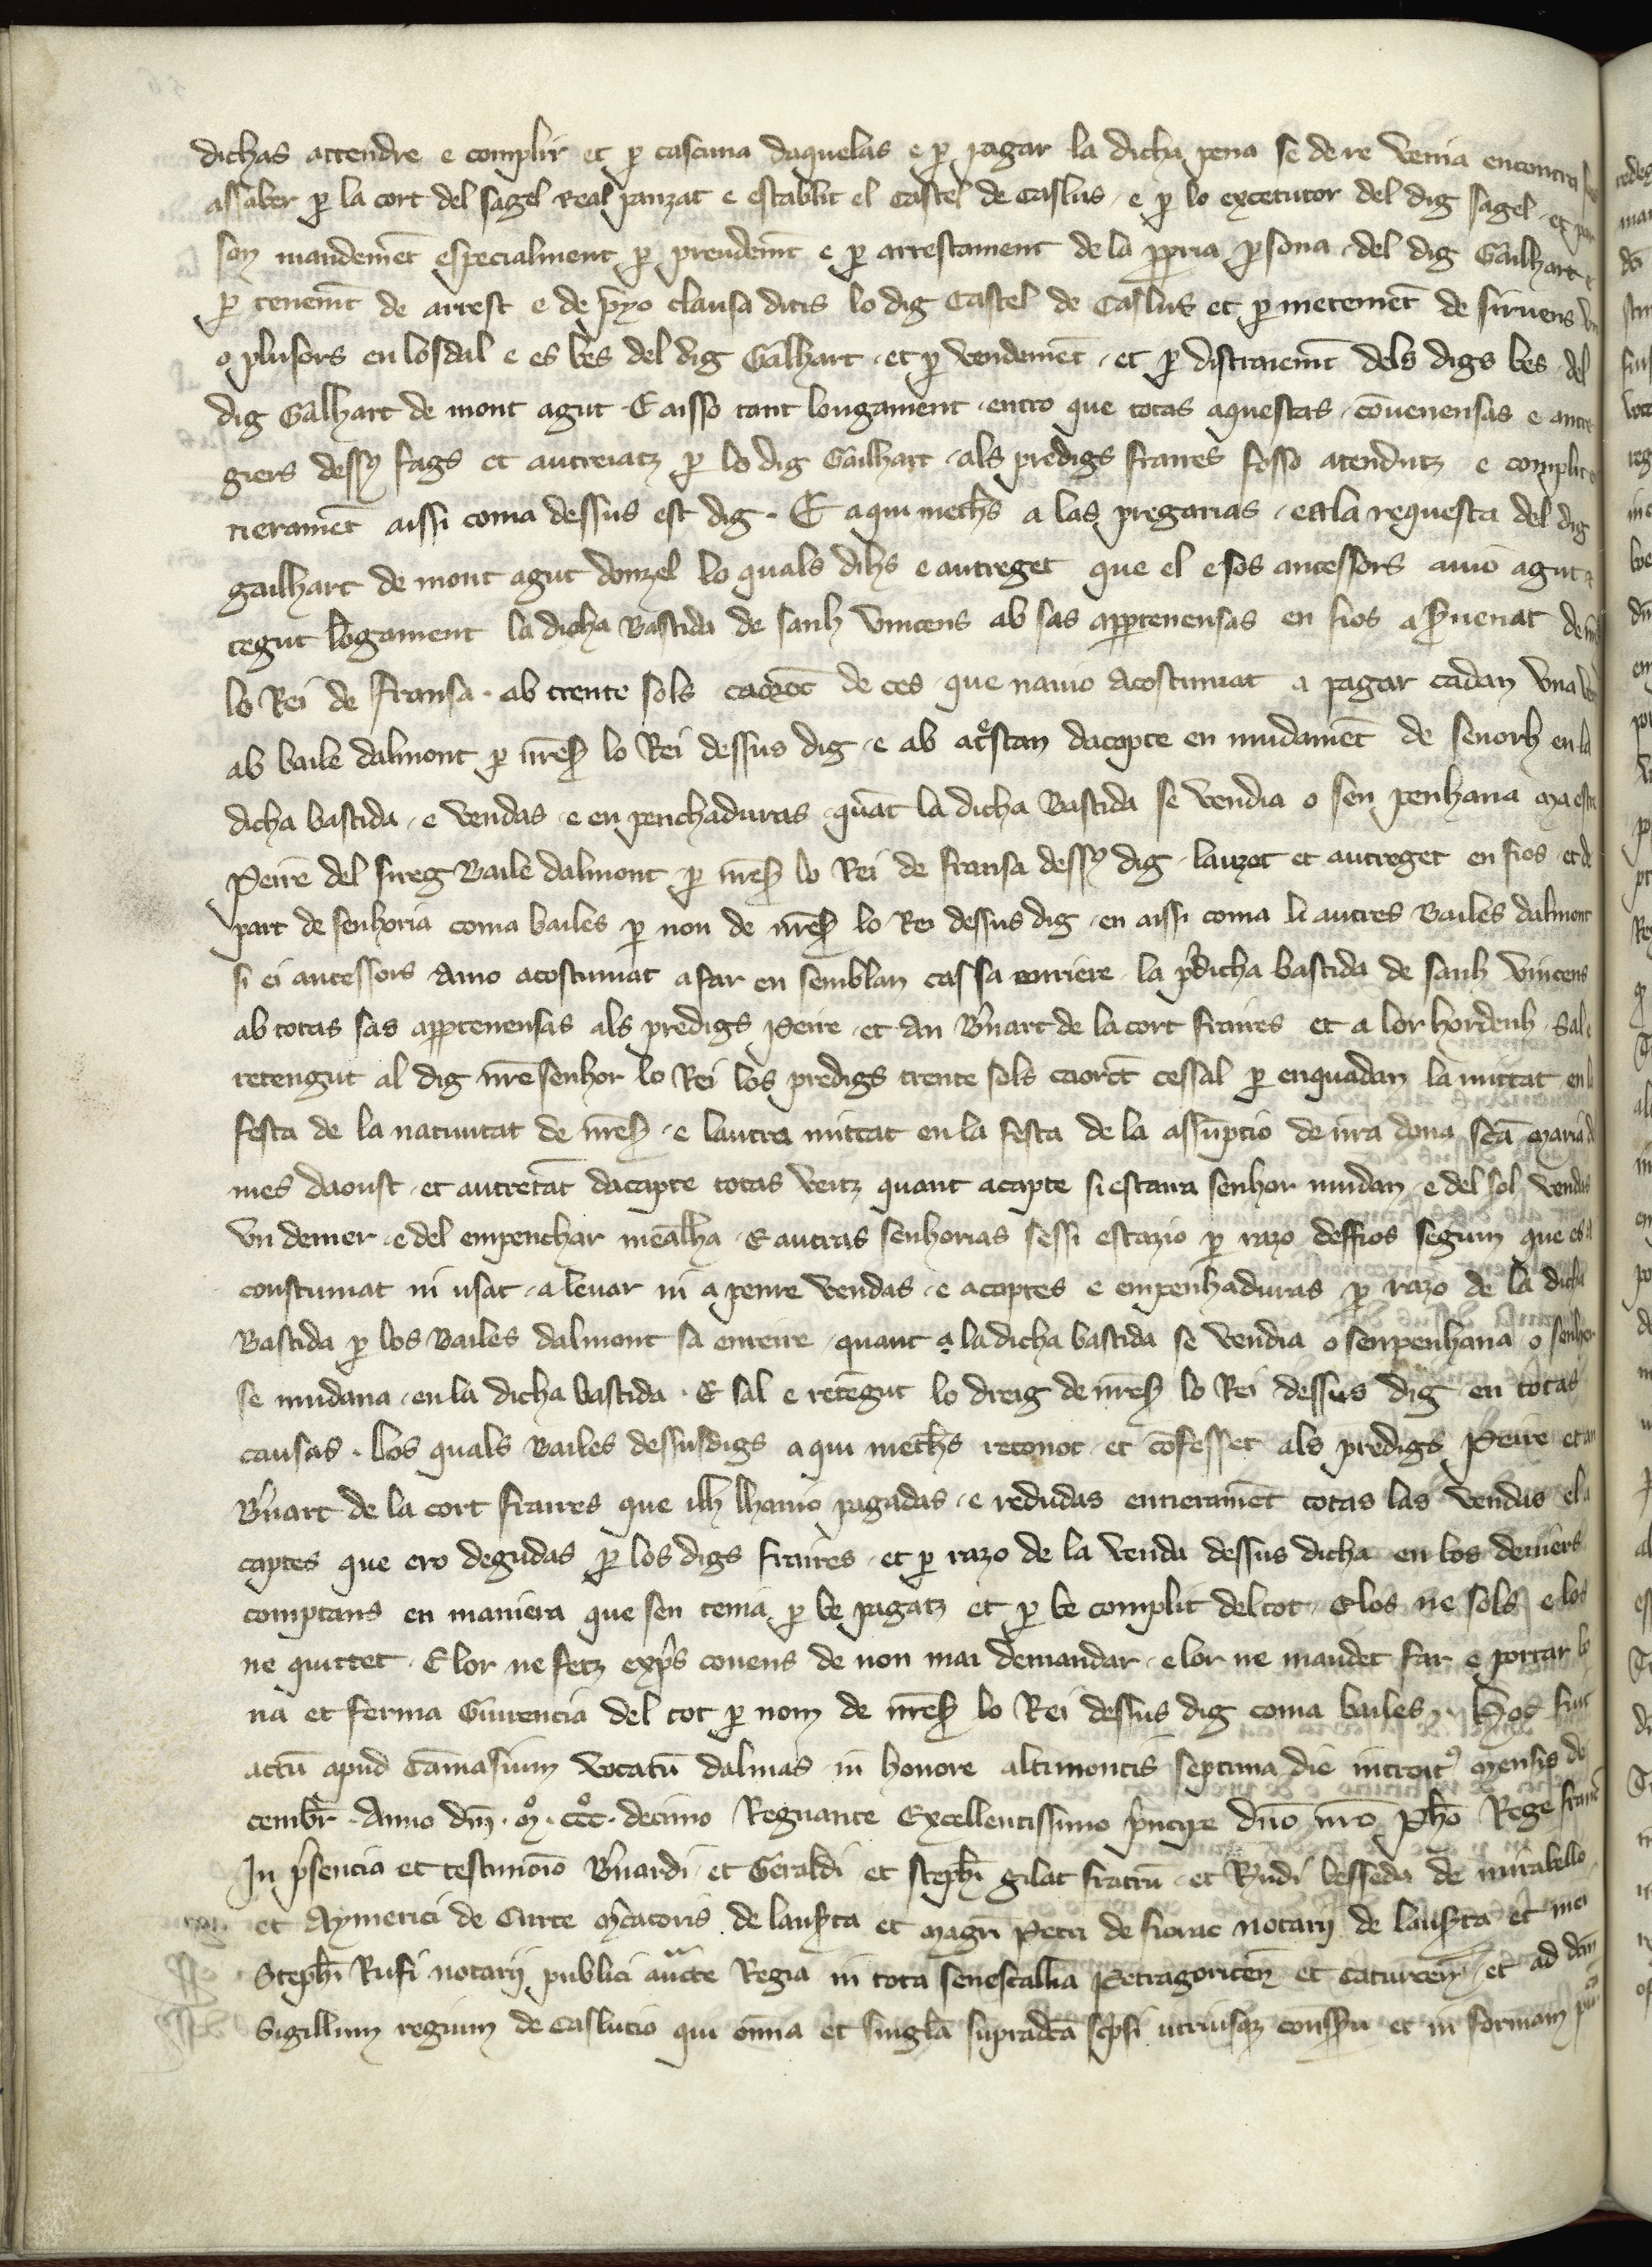 dichas attendre e complir et p̱ cascuna daquelas e p̱ pagar la dicha pena se de re venia encontra
assaber p̱ la cort del sagel real pauzat e establit el castel de Caslus e p̱ lo execetutor del dig sagel et par
son mandemēt especialment p̱ prendemēt e p̱ arrestament de la ꝓpria p̱sona del dig Gailhart e
p̱ tenemēt de arrest e de p̄yo clausa dītis lo dig Castel de Caslus et p̱ metemēt de siruens vn
o plusors en losdal e es bēs del dig Gailhart et p̱ vendemēt et p̱ distraiemēt dels digs bes del
dig Galhart de mont agut E aisso tant longament entro que totas aquestas cōuenensas e autre
giers dessꝯ fags et autreiatz p̱ lo dig Gailhart als predigs fraires fosso atendutz e complit e
tieramēt aissi coma dessus est dig E aqui meths a las pregarias e a la requesta del dig
gailhart de mont agut donzel lo quals dihs e autreget que el e sos ancessors auio agut e
tegut lōgament la dicha Bastida de sanh Vincens ab sas apꝑtenensas en fios a p̄uenat de
lo Rei de Fransa ab trente sols caorct̄ de ces que nauio acostumat a pagar cadan vna
ab baile dalmont p̱ nr̄eꝰ lo Rei dessus dig e ab atr̄stan dacapte en mudamēt de senorh en la
dicha bastida e vendas e en penchaduras quāt la dicha Bastida se vendia o sen penhaua
Peire del sireg Baile dalmont p̱ nr̄eꝰ lo Rei de fransa dessꝯ dig lauzet et autreget en fios et de
part de senhoria coma bailes p̱ non de nr̄eꝰ lo Rei dessus dig en aissi coma li autres Bailes dalmont
si ei ancessors auio acostumat a far en semblan cas sa enriere la p̄dicha bastida de sanh Vincens
ab totas sas apꝑtenensas als predigs Peire et an Bn̄art de la cort fraires et a lor hordenh Sal e
retengut al dig nr̄e senhor lo Rei los predigs trente sols caorct̄ cessal p̱ enquadan la mittat en la
festa de la natiuitat de nr̄eꝰ e lautra mittat en la festa de la assūptio de nr̄a dona scā maria
mes daoust et autretāt dacapte totas vetz quant acapte si estaua senhor mudan e del sol vendas
vn denier e del empenchar mealha E autras senhorias sessi estazio p̱ razo deffios segum que es a
constumat ni usat a leuar ni a penre vendas e acaptes e empenhaduras p̱ razo de la dicha
Bastida p̱ los Bailes dalmont sa enreire quant a la dicha bastida se vendia o senpenhaua o senhor
se mudaua en la dicha bastida E sal e retēgut lo dreig de nr̄eꝰ lo Rei dessus dig en totas
causas Los quals Bailes dessusdigs aqui meths reconoc et cōfesset als predigs Peire et an
Bn̄art de la cort fraires que ilh lhauio pagadas e redudas entieramēt totas las vendas el a
captes que ero degudas p̱ los digs fraires et p̱ razo de la venda dessus dicha en los deniers
comptans en maniera que sen tenia p̱ be pagatz et p̱ be complit deltot E los ne sols e los
ne quittet E lor ne fetz exp̄s couens de non mai demandar e lor ne mandet far e portar bo
na et ferma Guirencia del tot p̱ nom de nr̄eꝰ lo Rei dessus dig coma bailes Hoc fuit
actū apud Cāmasium vocatū dalmas in honore altimontis septima die introitꝯ mensis de
cembr̄ Anno dn̄i m̊ cc̊c decimo Regnante Excellentissimo p̄ncipe dn̄o nr̄o Pho Rege
In p̄sencia et testimōio Bn̄ardi et Geraldi et stephī gilat fratrū et Rm̄di besseda de mirabello
et Aymerici de Curte m̄catoris de lauzerta et magri Petri de fiorac notarij de lauzerta et mei
Stephī Rufi notarij publici auc̄te Regia in tota senescallia Petragoricen̄ et Caturcen̄ et ad dc̄m
Sigillum regium de Caslucio qui om̄ia et singlā supradc̄a scp̄si utriusqꝫ consensu et in formam